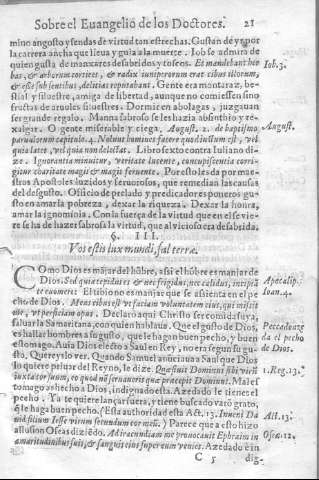 Sobre el Euangelio de los Doctores. 21
mino angosto y sendas de virtud tan estrechas. Gustan de yr por
la carrera ancha que lleua y guia a la muerte. Iob se admira de
quien gusta de manxares desabridos y toscos. Et mandebant her
bas, & arborum cortices, & radix iuniperorum erat cibus illorum,
& esse sub sentibus, delitias reputabant. Gente era montaraz, be-
stial y siluestre, amiga de libertad, aunque no comiessen sino
fructas de aruoles siluestres. Dormir en abolagas, juzgauan
ser grande regalo. Manna sabroso se les hazia absinthio y re-
xalgar. O gente miserable y ciega, August. 2. de baptismo
paruulorum capitulo. 4. Nolunt homines facere quod iustum est, vel
quia latet, vel quia non delectat. Libro sexto contra Iuliano di-
ze. Ignorantia minuitur, veritate lucente, concupiscentia corri-
gitur charitate magis & magis feruente. Por esto les da por mae-
stros Apostoles luzidos y feruorosos, que remedian las causas
del desgusto. Officio de prelado y predicadores poner os gu-
sto en amar la pobreza, dexar la riqueza. Dexar la honra,
amar la ignominia. Con la fuerça de la virtud que en el se vie-
re se ha de hazer sabrosa la virtud, que al vicioso era desabrida.
§. III.
Vos estis lux mundi, sal terræ.
COmo Dios es májar del hóbre, assi el hóbre es manjar de
Dios. Sed quia tepidus es & nec frigidus, nec calidus, incipiã
te euomere Et subito no es manjar que se assienta en el pe
cho de Dios. Meus cibus est vt faciam voluntatem eius, qui misit
me, vt perficiam opus. Declaro aqui Christo ser comida suya,
saluar la Samaritana, con quien hablaua. Que el gusto de Dios,
es hallar hombres a su gusto, que le hagan buen pecho, y buen
estomago. Auia Dios electo a Saul en Rey, no era segun su gu-
sto, Quereys lo ver. Quando Samuel anunciaua a Saul que Dios
lo quiere priuar del Reyno, le dize. Quæsiuit Dominus sibi virũ
iuxta cor suum, eo quod nõ seruaueris quæ præcepit Dominus. Mal es
tomago as hecho a Dios, indignado esta. Azedado le tiene el
pecho. Ya te quiere lançar fuera, y tiene buscado vaso grato,
q̃ le haga buen pecho. (Esta authoridad esta Act. 13. Inueni Da
uid filium Iesse virum secundum cor meũ.) Parece que a esto hizo
allusion Oseas diziẽdo. Ad iracundiam me prouocauit Ephraim in
amaritudinibus suis, & sanguis eius super eum veniet. Azedado e in
C 5 dig-
Iob. 3.
August.
Apocalip.
Ioan. 4.
Peccado azeda
da el pecho
de Dios.
1. Reg. 13.
Act. 13.
Osea. 12.